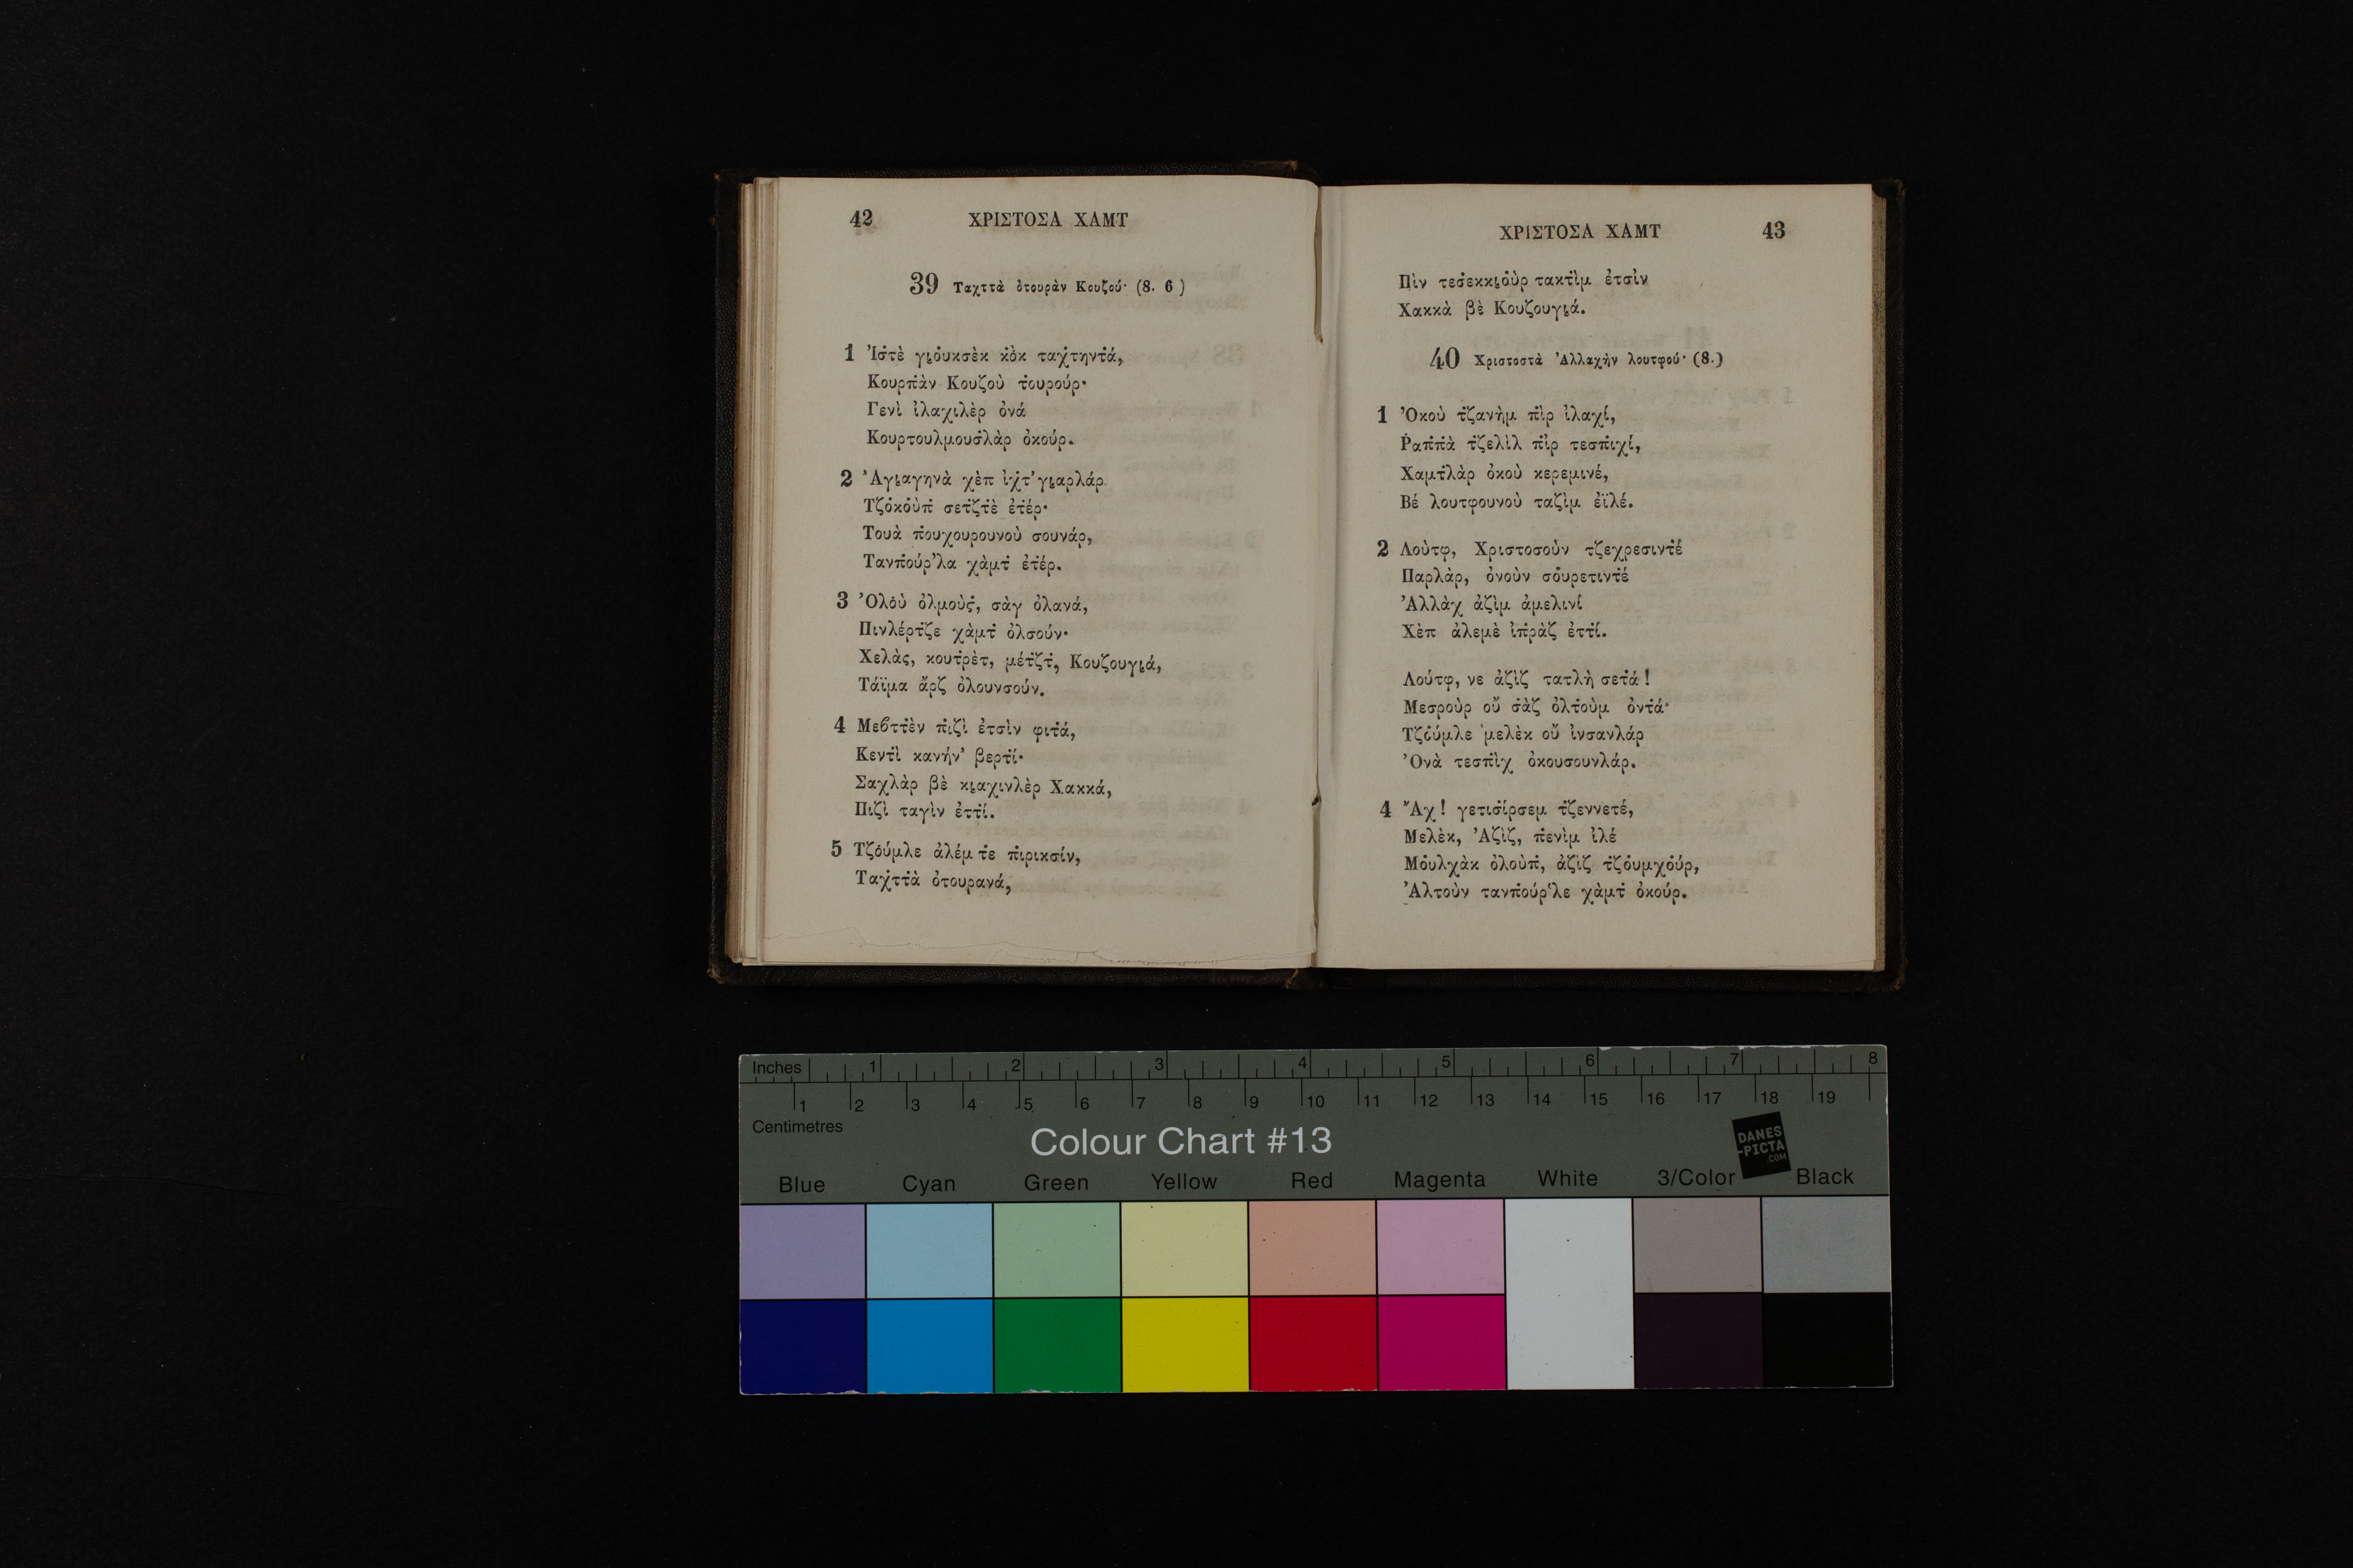 42 ΧΡΙΣΤΟΣΑ ΧΑΜΤ
39 Ταχττὰ ὀτουρὰν Κουζού· (8. 6)
1 Ἰσ̇τὲ γι̱ο̇ύκσὲκ κο̇κ ταχτηντ̇ά,
Κουρπ̇ὰν Κουζοὺ τ̇ουρούρ·
Γενὶ ἰλαχιλὲρ ὀνά
Κουρτουλμουσ̇λὰρ ὀκούρ.
2 Ἀγι̱αγηνὰ χὲπ ἰχτ̇' γι̱αρλάρ
Τζο̇κο̇ὺπ̇ σετ̇ζτ̇ὲ ἐτ̇έρ·
Τουὰ π̇ουχουρουνοὺ σουνάρ,
Τανπ̇ούρ'λα χὰμτ̇ ἐτ̇έρ.
3 Ὀλο̇ὺ ὀλμοὺς̇, σὰγ ὀλανά,
Πινλέρτ̇ζε χὰμτ̇ ὀλσούν·
Χελὰς, κουτ̇ρὲτ, μέτ̇ζτ̇, Κουζουγι̱ά,
Τάϊμα ἄρζ ὀλουνσούν.
4 Μεϐττ̇ὲν π̇ιζὶ ἐτσὶν φιτ̇ά,
Κεντ̇ὶ κανήν' βερτ̇ί·
Σαχλὰρ βὲ κι̱αχινλὲρ Χακκά,
Πιζὶ ταγὶν ἐττ̇ί.
5 Τζο̇ύμλε ἀλέμ τ̇ε π̇ιρικσίν,
Ταχ̇ττ̇ὰ ὀτουρανά,
ΧΡΙΣΤΟΣΑ ΧΑΜΤ 43
Πὶν τεσ̇εκκι̱ο̇ὺρ τακτ̇ὶμ ἐτσὶν
Χακκὰ βὲ Κουζουγι̱ά.
40 Χριστοστὰ Ἀλλαχὴν λουτφού· (8.)
1 Ὀκοὺ τ̇ζανὴμ π̇ὶρ ἰλαχί,
Ῥαππ̇ὰ τ̇ζελὶλ π̇ὶρ τεσπ̇ιχί,
Χαμτ̇λὰρ ὀκοὺ κερεμινέ,
Βέ λουτφουνοὺ ταζὶμ ἐϊλέ.
2 Λοὺτφ, Χριστοσοὺν τζεχρεσιντ̇έ
Παρλὰρ, ὀνοὺν σο̇υρετιντ̇έ
Ἀλλὰχ ἀζὶμ ἀμελινί
Χὲπ ἀλεμὲ ἰπ̇ρὰζ ἐττ̇ί.
Λούτφ, νε ἀζὶζ τατλὴ σετ̇ά!
Μεσροὺρ οὔ σ̇ὰζ ὀλτ̇οὺμ ὀντ̇ά·
Τζο̇ύμλε μελὲκ οὔ ἰνσανλάρ
Ὀνὰ τεσπ̇ὶχ ὀκουσουνλάρ.
4 Ἄχ! γετισ̇ίρσεμ τ̇ζεννετέ,
Μελὲκ, Ἀζὶζ, π̇ενὶμ ἰλέ
Μο̇υλχὰκ ὀλοὺπ̇, ἀζὶζ τ̇ζο̇υμχο̇ύρ,
Ἀλτοὺν τανπ̇ούρ'λε χὰμτ̇ ὀκούρ.
Inches 1 2 3 4 5 6 7 8
1 2 3 4 5 6 7 8 9 10 11 12 13 14 15 16 17 18 19
Centimetres
Colour Chart #13
DANES
-PICTA
.COM
Blue Cyan Green Yellow Red Magenta White 3/Color Black